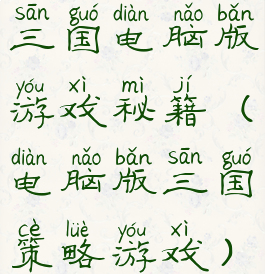 sān guó diàn nǎo bǎn
三国电脑版
yóu xì mì jí
游戏秘籍（
diàn nǎo bǎn sān guó
电脑版三国
cè lüè yóu xì
策略游戏）